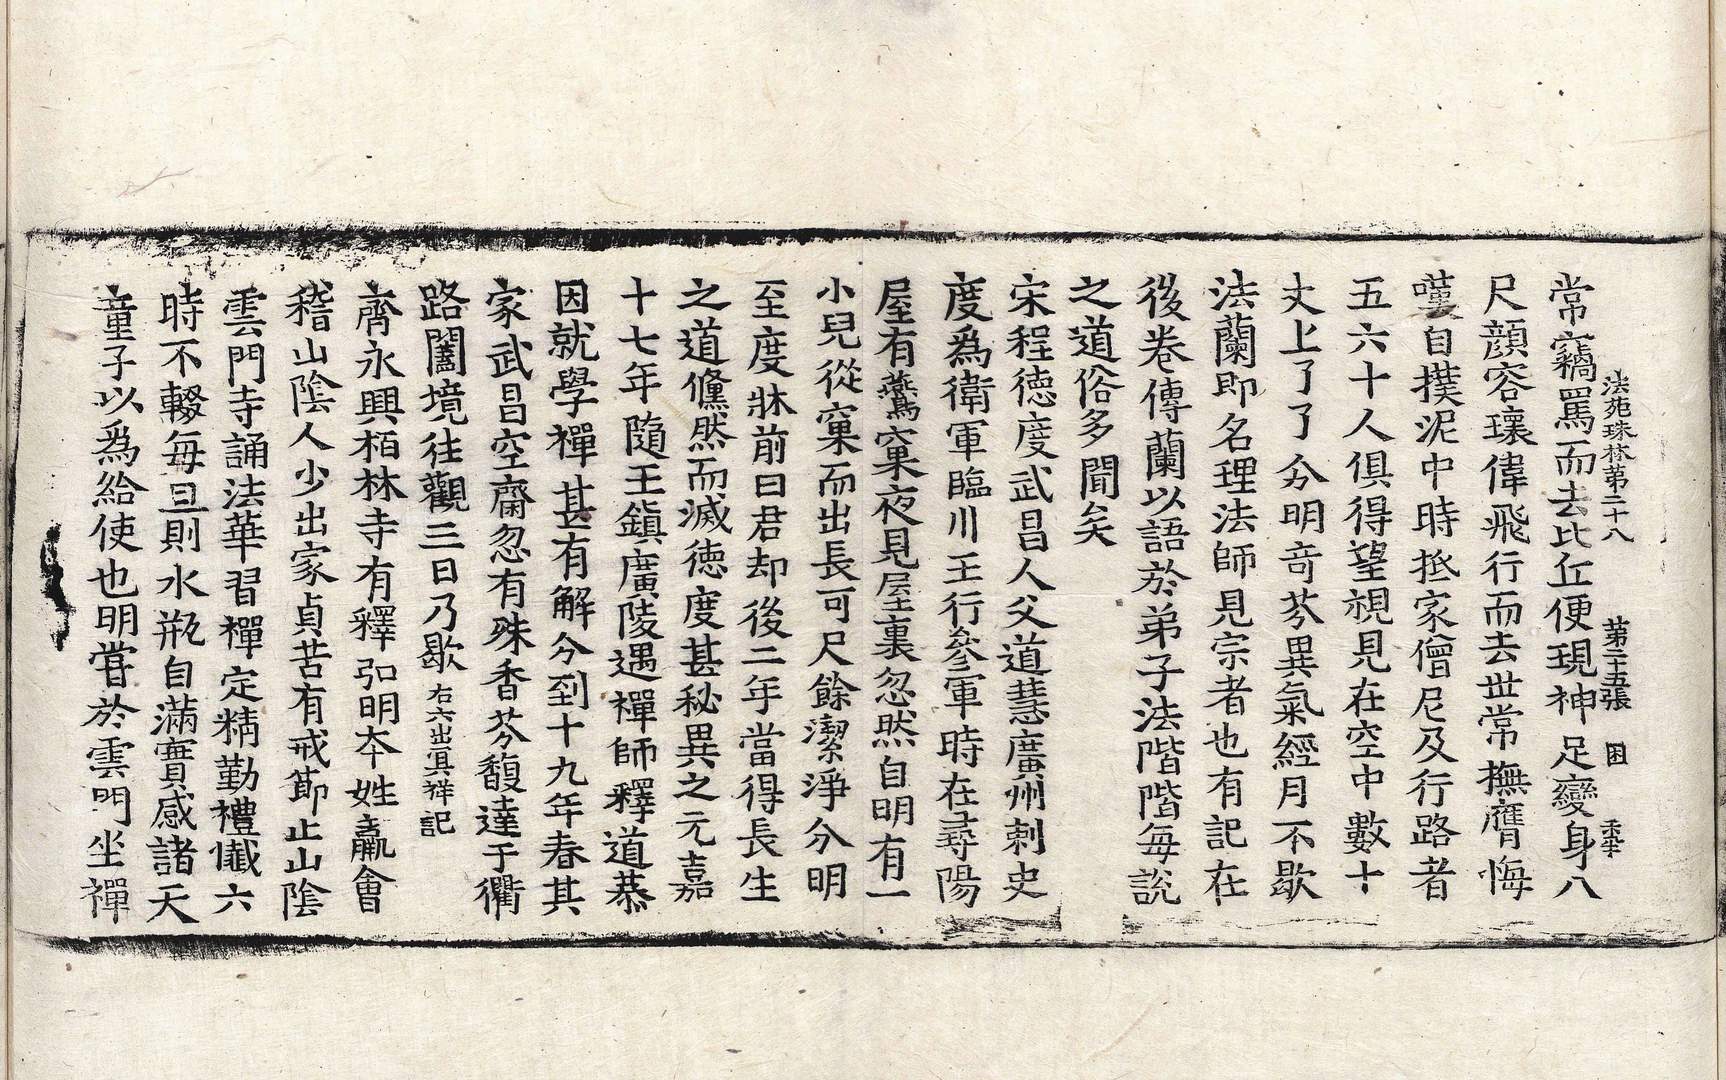 法苑珠林第二十八 第二十五張 困
常竊罵而去比丘便現神足變身八
尺顏容瓌偉飛行而去世常撫膺悔
嘆自撲泥中時抵家僧尼及行路者
五六十人俱得望視見在空中數十
丈上了了分明竒芬異氣經月不歇
法蘭即名理法師見宗者也有記在
後卷傳蘭以語於弟子法階階每說
之道俗多聞矣
宋程德度武昌人父道慧廣州刺史
度爲衛軍臨川王行叅軍時在尋陽
屋有鷰窠夜見屋裏忽然自明有一
小兒從窠而出長可尺餘潔淨分明
至度牀前曰君却後二年當得長生
之道儵然而滅德度甚秘異之元嘉
十七年隨王鎮廣陵遇禪師釋道恭
因就學禪甚有解分到十九年春其
家武昌空齋忽有殊香芬馥達于衢
路闔境往觀三日乃歇 右六出冥祥記
齊永興栢林寺有釋弘明本姓嬴會
稽山陰人少出家貞苦有戒節止山陰
雲門寺誦法華習禪定精勤禮懺六
時不輟每旦則水瓶自滿實感諸天
童子以爲給使也明甞於雲門坐禪